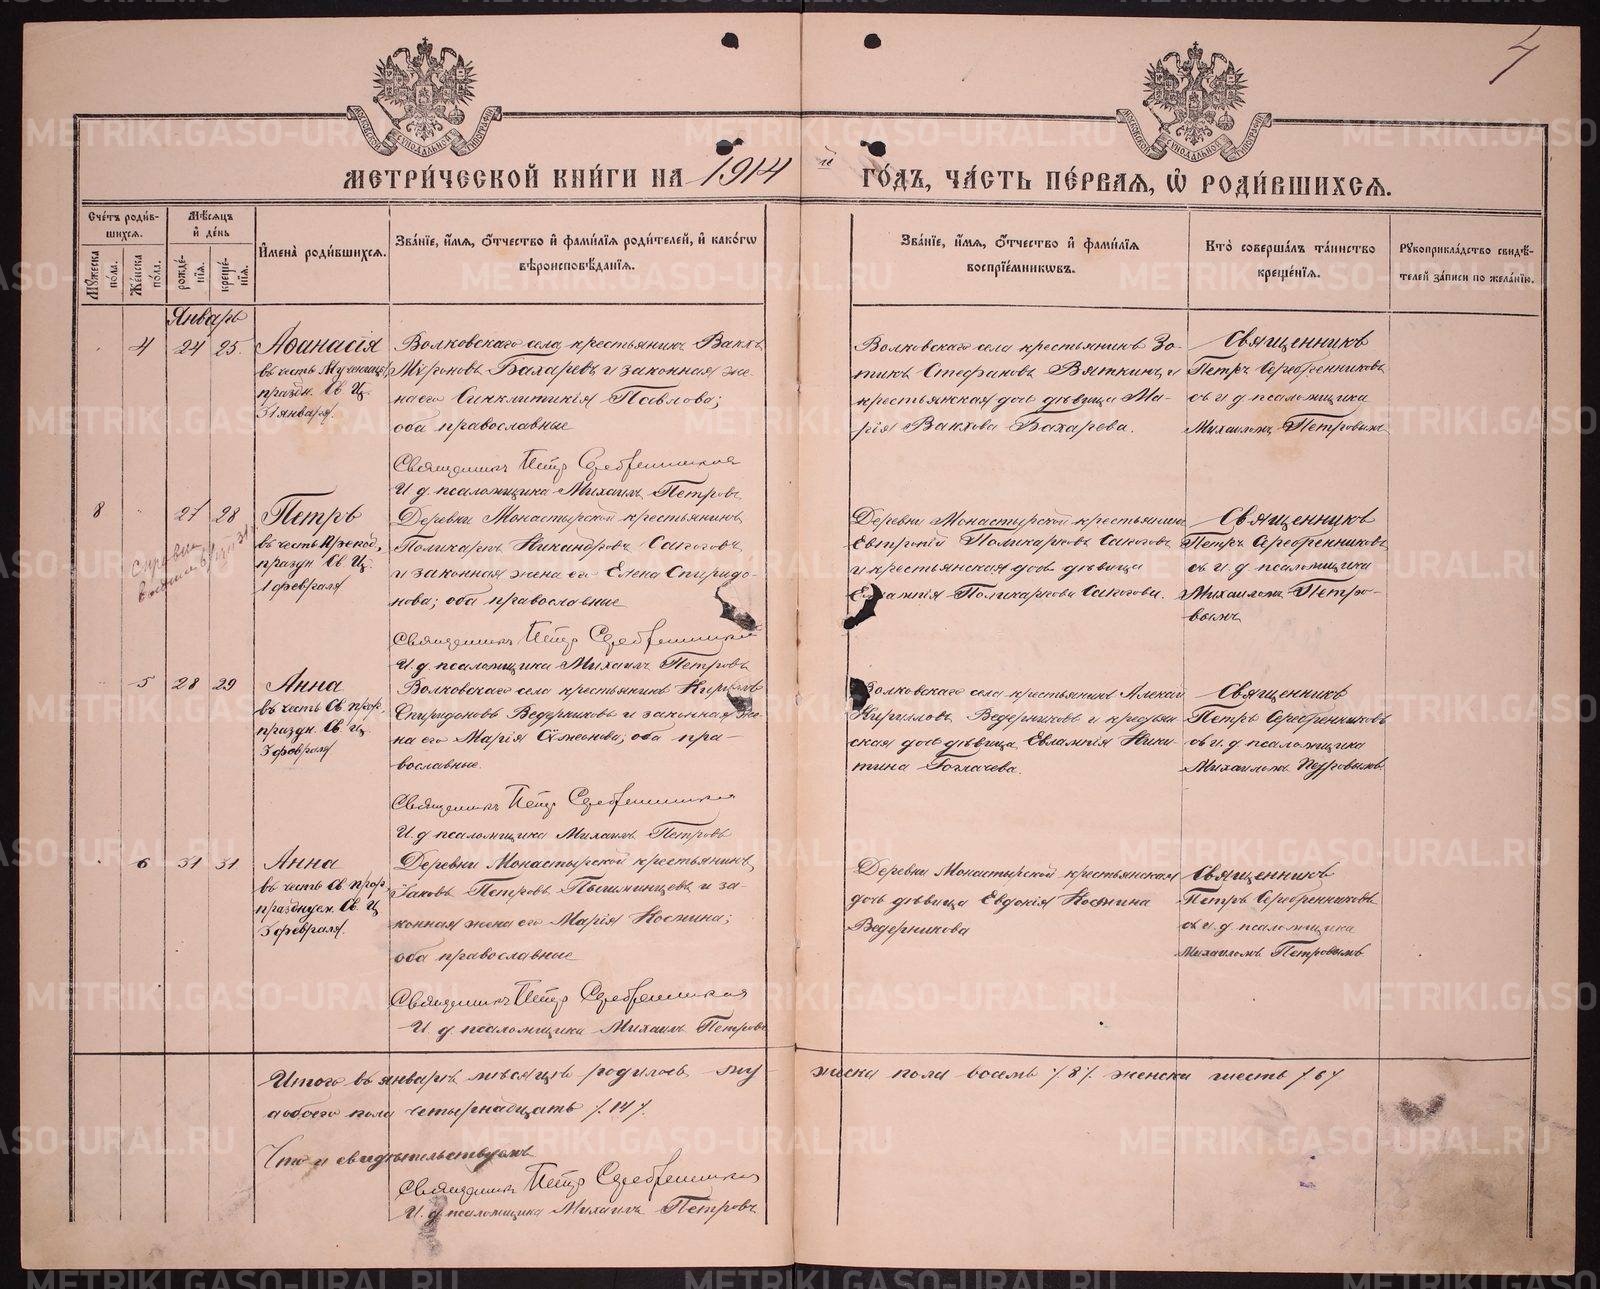 4
МЕТРИ́ЧЕСКОЙ КНИ́ГИ НА 1914 й ГО́ДЪ, ЧА́СТЬ ПЕ́РВАЯ, Ѡ҆ РОДИ́ВШИХСЯ.
Сче́тъ роди́вшихся.
Мꙋжеска по́ла.
Же́нска по́ла.
Мѣ́сяцъ и҆ де́нь
рожде́нїя.
креще́нїя.
И҆мена̀ роди́вшихся.
Зва́нїе, и҆́мя, ѻ҆́тчество и҆ фами́лїя роди́телей, и҆ како́гѡ
вѣроисповѣ́данїя.
Зва́нїе, и҆́мя, ѻ҆́тчество и҆ фами́лїя
воспрїе́мникѡвъ.
Кто̀ соверша́лъ та́инство
креще́нїя.
Рꙋкоприкла́дство свидѣ́-
телей за́писи по жела́нїю.
Январь
4 24 25. Аѳанасія
въ честь Мученицы,
праздн. Св. Ц.
31 января.
Волковскаго села крестьянинъ Вакхъ
Мѵроновъ Бахаревъ и законная же-
на его Синклитикія Павлова;
оба православные
Священникъ Петр Серебренников
И. д. псаломщика Михаилъ Петровъ
Волковскаго села крестьянинъ Зо-
тикъ Стефановъ Вяткинъ, и
крестьянская дочь дѣвица Ма-
рія Вакхова Бахарева.
Священникъ
Петръ Серебренниковъ
съ и. д. псаломщика
Михаиломъ Петровымъ
8 27 28 Петръ
въ честь Препод.,
праздн. Св. Ц.
1 февраля
Деревни Монастырской крестьянинъ
Поликарпъ Никандровъ Сапоговъ
и законная жена его Елена Спиридо-
нова; оба православные
Священникъ Петр Серебренников
И. д. псаломщика Михаилъ Петровъ
Деревни Монастырской крестьянинъ
Евтропій Поликарповъ Сапоговъ
и крестьянская дочь дѣвица
Евлампія Поликарпова Сапогова.
Священникъ
Петръ Серебренниковъ
съ и. д. псаломщика
Михаиломъ Петро-
вымъ
5 28 29 Анна
въ честь Св. прор.
праздн. Св. Ц.
3 февраля
Волковскаго села крестьянинъ Кириллъ
Спиридоновъ Ведерниковъ и законная же-
на его Марія Сѵмеонова; оба пра-
вославные.
Священникъ Петр Серебренников
И. д. псаломщика Михаилъ Петровъ
Волковскаго села крестьянинъ Алексѣй
Кирилловъ Ведерниковъ и крестьян-
ская дочь дѣвица Евлампія Ники-
тина
Священникъ
Петръ Серебренниковъ
съ и. д. псаломщика
Михаиломъ Петровымъ.
6 31 31 Анна
въ честь Св. прор.
празднуем. Св. Ц.
3 февраля.
Деревни Монастырской крестьянинъ
Іаковъ Петровъ Пышминцевъ и за-
конная жена его Марія Космина;
оба православные
Священникъ Петр Серебренников
И. д. псаломщика Михаилъ Петровъ
Деревни Монастырской крестьянская
дочь дѣвица Евдокія Космина
Ведерникова
Священникъ
Петръ Серебренниковъ
съ и. д. псаломщика
Михаиломъ Петровымъ
Итого въ январѣ мѣсяцѣ родилось му-жска пола восемь /8/. женска шесть /6/
а обоего пола четырнадцать /.14/.
Что и свидѣтельствуемъ
Священникъ Петр Серебренников
И. д. псаломщика Михаилъ Петровъ
METRIKI.GASO-URAL.RU